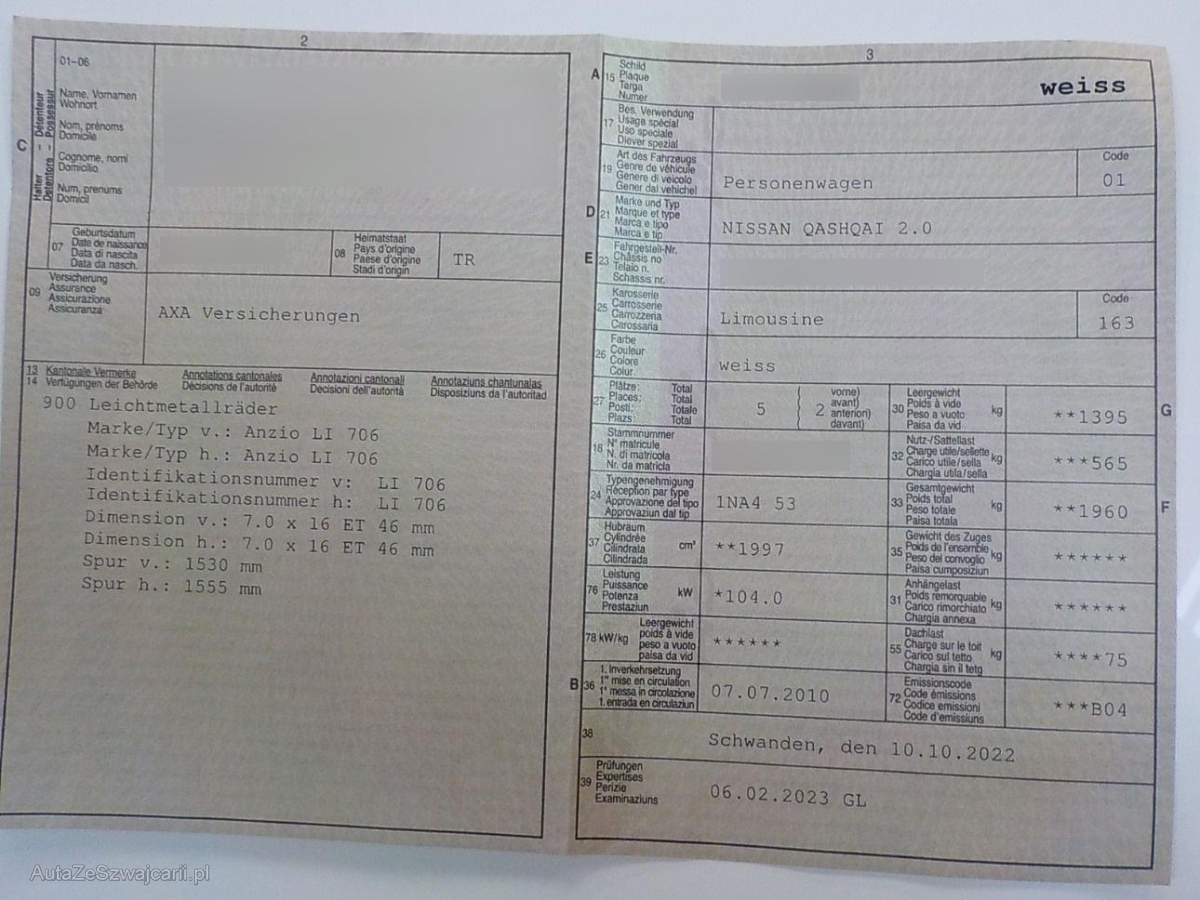 2
01-06
Name, Vornamen
Wohnort
Nom, prénoms
Domicile
Cognome, nomi
Domicilio
Num, prenums
Domicil
Halter - Détenteur
Detentore - Possessur
C
07
Geburtsdatum
Date de naissance
Data di nascita
Data da nasch.
08
Heimatstaat
Pays d'origine
Paese d'origine
Stadi d'origin
TR
09
Versicherung
Assurance
Assicurazione
Assicuranza
AXA Versicherungen
13 Kantonale Vermerke Annotations cantonales Annotazioni cantonali Annotaziuns chantunalas
14 Verfügungen der Behörde Décisions de l'autorité Decisioni dell'autorità Disposiziuns da l'autoritad
900 Leichtmetallräder
Marke/Typ v.: Anzio LI 706
Marke/Typ h.: Anzio LI 706
Identifikationsnummer v: LI 706
Identifikationsnummer h: LI 706
Dimension v.: 7.0 x 16 ET 46 mm
Dimension h.: 7.0 x 16 ET 46 mm
Spur v.: 1530 mm
Spur h.: 1555 mm
3
A
15
Schild
Plaque
Targa
Numer
weiss
17
Bes. Verwendung
Usage spécial
Uso speciale
Diever spezial
19
Art des Fahrzeugs
Genre de véhicule
Genere di veicolo
Gener dal vehichel
Personenwagen
Code
01
D
21
Marke und Typ
Marque et type
Marca e tipo
Marca e tip
NISSAN QASHQAI 2.0
E
23
Fahrgestell-Nr.
Châssis no
Telaio n.
Schassis nr.
25
Karosserie
Carrosserie
Carrozzeria
Carossaria
Limousine
Code
163
26
Farbe
Couleur
Colore
Colur
weiss
27
Plätze: Total
Places: Total
Posti: Totale
Plazs: Total
5
2
vorne)
avant)
anteriori)
davant)
30
Leergewicht
Poids à vide
Peso a vuoto
Paisa da vid
kg
**1395
G
18
Stammnummer
N° matricule
N. di matricola
Nr. da matricla
32
Nutz-/Sattellast
Charge utile/sellette
Carico utile/sella
Chargia utila/sella
kg
***565
24
Typengenehmigung
Réception par type
Approvazione del tipo
Approvaziun dal tip
1NA4 53
33
Gesamtgewicht
Poids total
Peso totale
Paisa totala
kg
**1960
F
37
Hubraum
Cylindrée
Cilindrata
Cilindrada
cm³
**1997
35
Gewicht des Zuges
Poids de l'ensemble
Peso del convoglio
Paisa cumposiziun
kg
******
76
Leistung
Puissance
Potenza
Prestaziun
kW
*104.0
31
Anhängelast
Poids remorquable
Carico rimorchiato
Chargia annexa
kg
******
78 kW/kg
Leergewicht
poids à vide
peso a vuoto
paisa da vid
******
55
Dachlast
Charge sur le toit
Carico sul tetto
Chargia sin il tetg
kg
****75
B
36
1. Inverkehrsetzung
1re mise en circulation
1a messa in circolazione
1. entrada en circulaziun
07.07.2010
72
Emissionscode
Code émissions
Codice emissioni
Code d'emissiuns
***B04
38
Schwanden, den 10.10.2022
39
Prüfungen
Expertises
Perizie
Examinaziuns
06.02.2023 GL
AutaZeSzwajcarii.pl